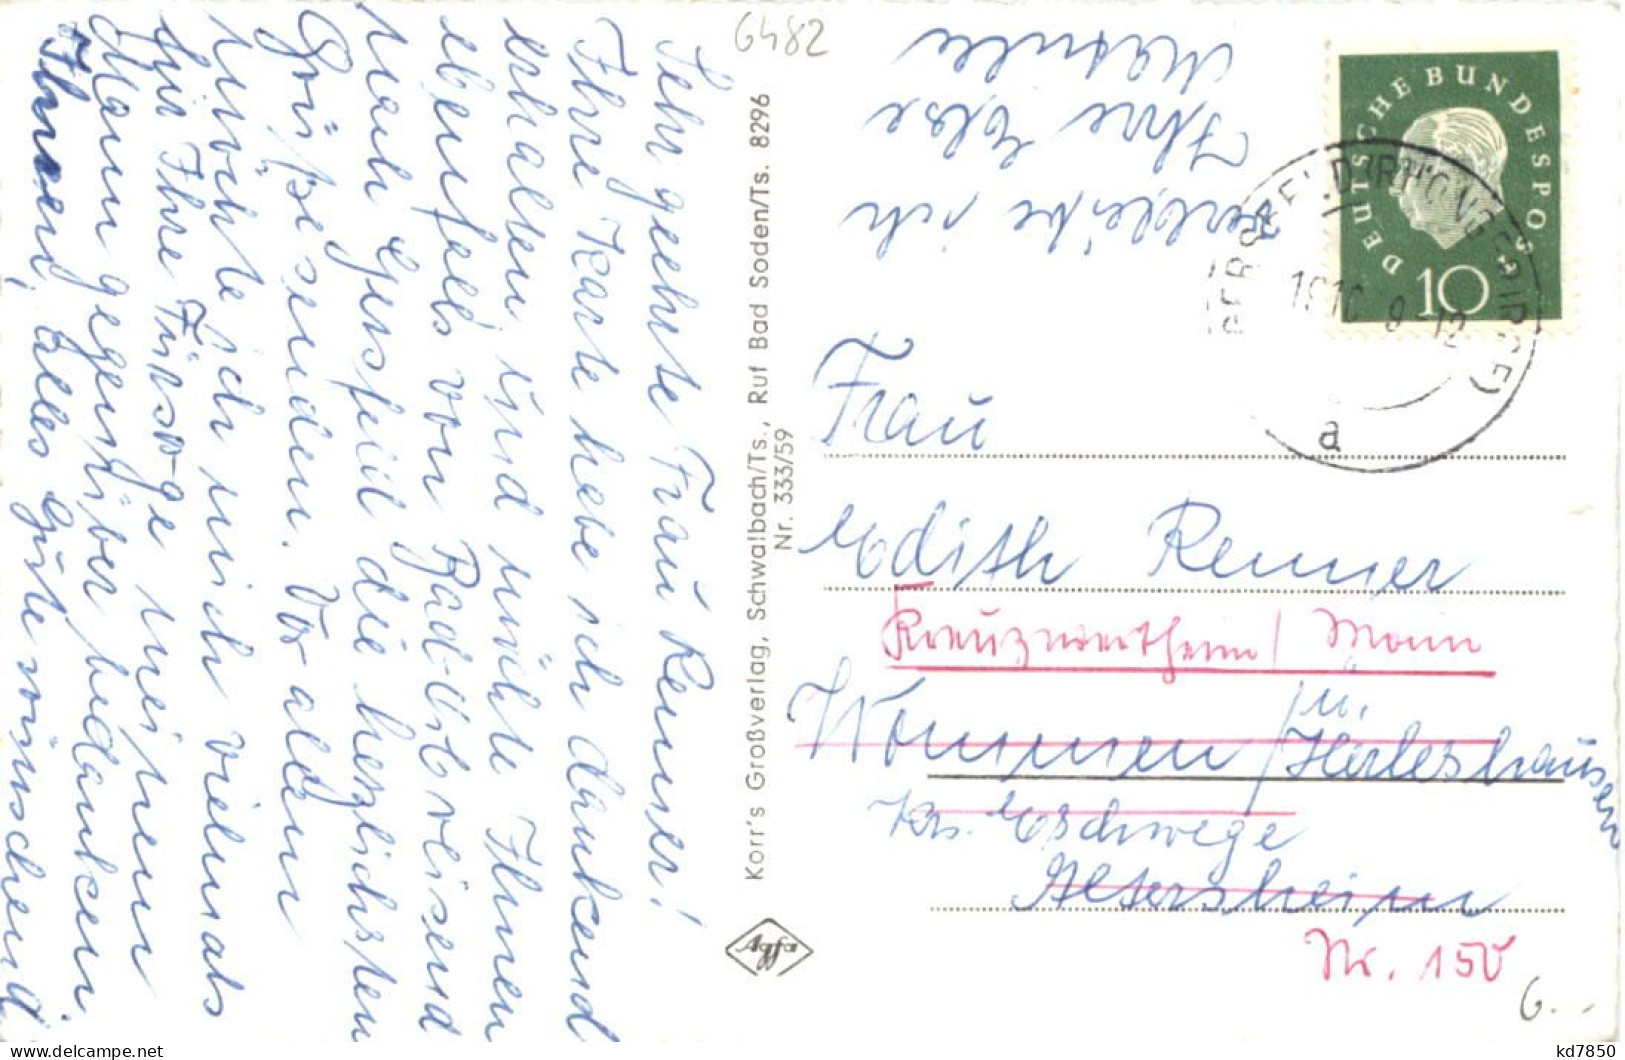 6482
Sehr geehrte Frau Renner!
Ihre Karte habe ich dankend
erhalten, und möchte Ihnen
ebenfalls von Bad-Orb reisend
nach Hersfeld die herzlichsten
Grüße senden. Vor allem
möchte ich mich vielmals
für Ihre Fürsorge meinem
Mann gegenüber bedanken.
Ihnen, alles Gute wünschend
verbleibe ich
Ihre Else
Korr's Großverlag, Schwalbach/Ts., Ruf Bad Soden/Ts. 8296
Nr. 333/59
Agfa
DEUTSCHE BUNDESPOST
10
a
Frau
Edith Renner
Kreuzwertheim / Main
Wommen / ü. Herleshausen
Krs. Eschwege
Altersheim
Nr. 150
6.--
kd7850